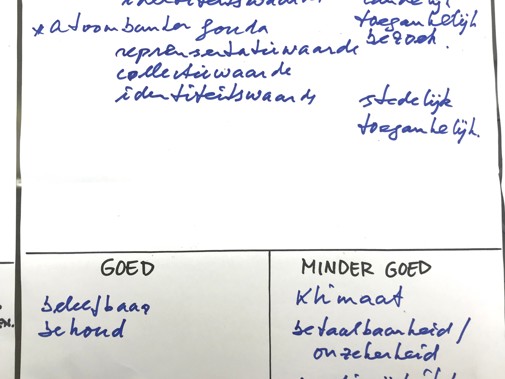 identiteitswaarde landelijk
toegankelijk
* atoombunker gouda bezoek.
representatiewaarde
collectiewaarde
identiteitswaarde stedelijk
toegankelijk.
GOED
MINDER GOED
EN.
beleefbaar
behoud
Klimaat
betaalbaarheid /
onzekerheid